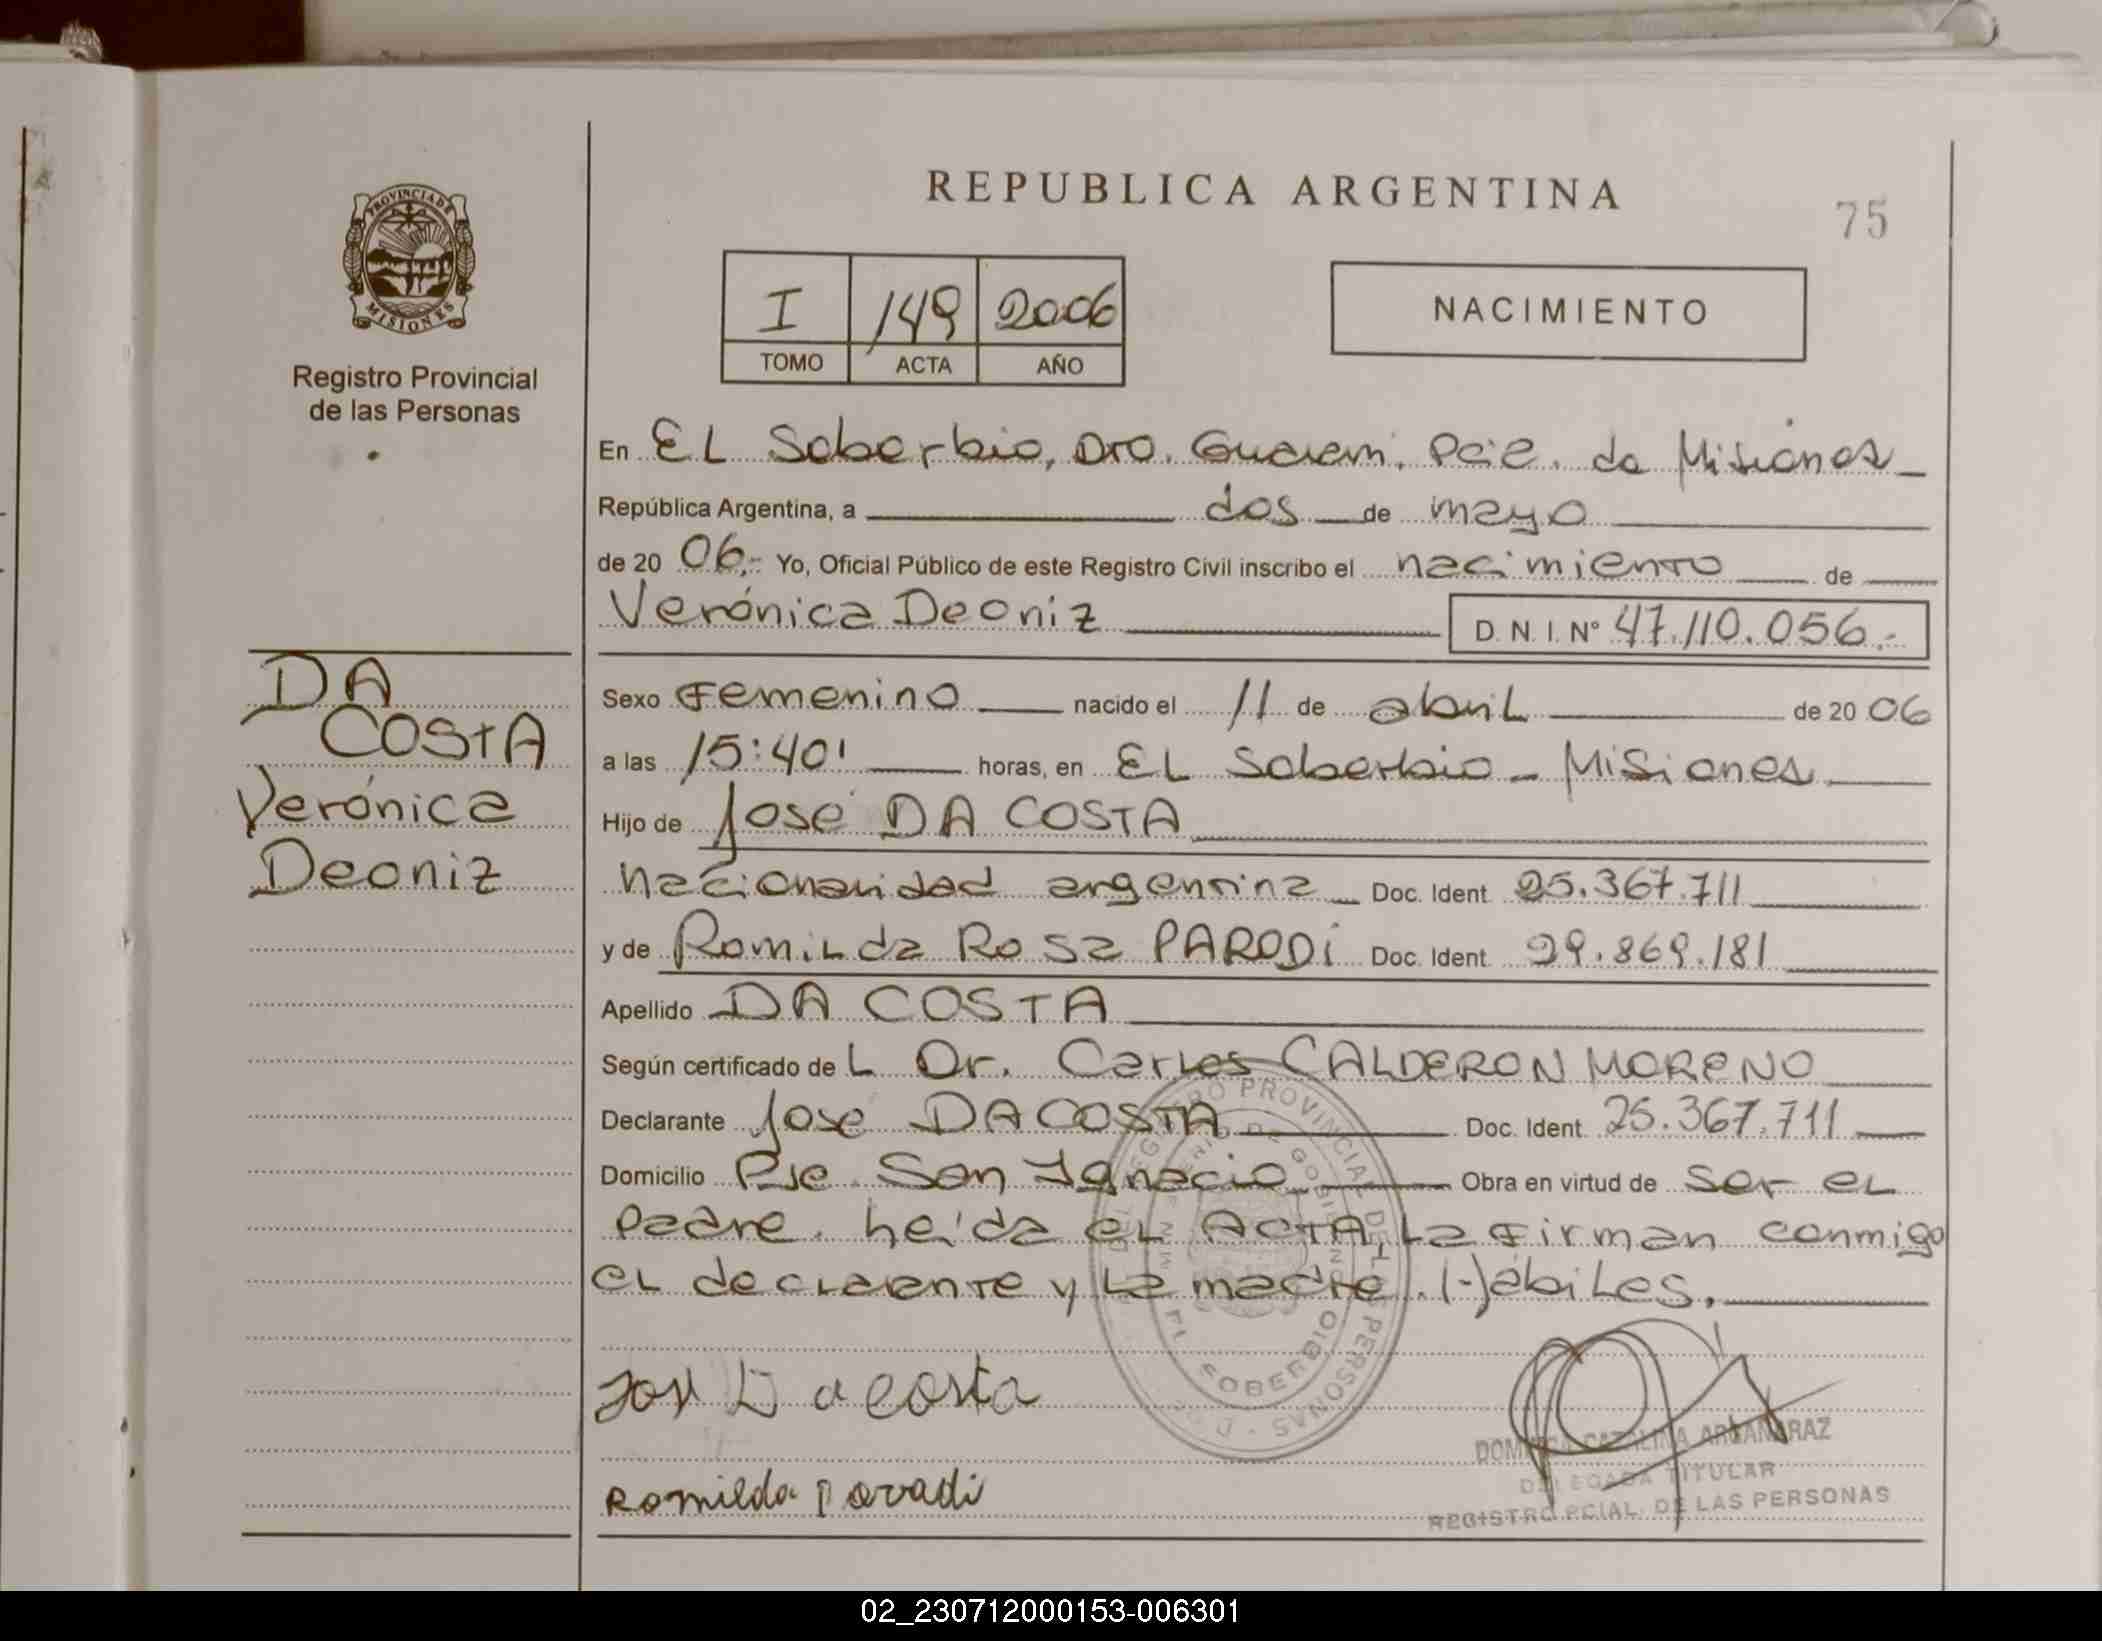 REPUBLICA ARGENTINA
75
PROVINCIA DE
MISIONES
Registro Provincial
de las Personas
I 149 2006
TOMO ACTA AÑO
NACIMIENTO
En EL Soberbio, Dto. Guarani. Pcie. de Misiones
República Argentina, a dos de mayo
de 20 06.- Yo, Oficial Público de este Registro Civil inscribo el nacimiento de
Verónica Deoniz D. N. I. Nº 47.110.056.-
DA
COSTA
Verónica
Deoniz
Sexo Femenino nacido el 11 de abril de 20 06
a las 15:40' horas, en EL Soberbio - Misiones
Hijo de José DA COSTA
nacionalidad argentina Doc. Ident. 25.367.711
y de Romilda Rosa PARODI Doc. Ident. 29.869.181
Apellido DA COSTA
Según certificado de L Dr. Carlos CALDERON MORENO
Declarante Jose DA COSTA Doc. Ident. 25.367.711
Domicilio Pje. San Ignacio Obra en virtud de ser el
padre. Leida el ACTA, La firman conmigo
el declarante y La madre. Hábiles.
REGISTRO PROVINCIAL DE LAS PERSONAS
EL SOBERBIO
José Da costa
Romilda Parodi
CATALINA
DELEGADA TITULAR
REGISTRO PCIAL. DE LAS PERSONAS
02_230712000153-006301